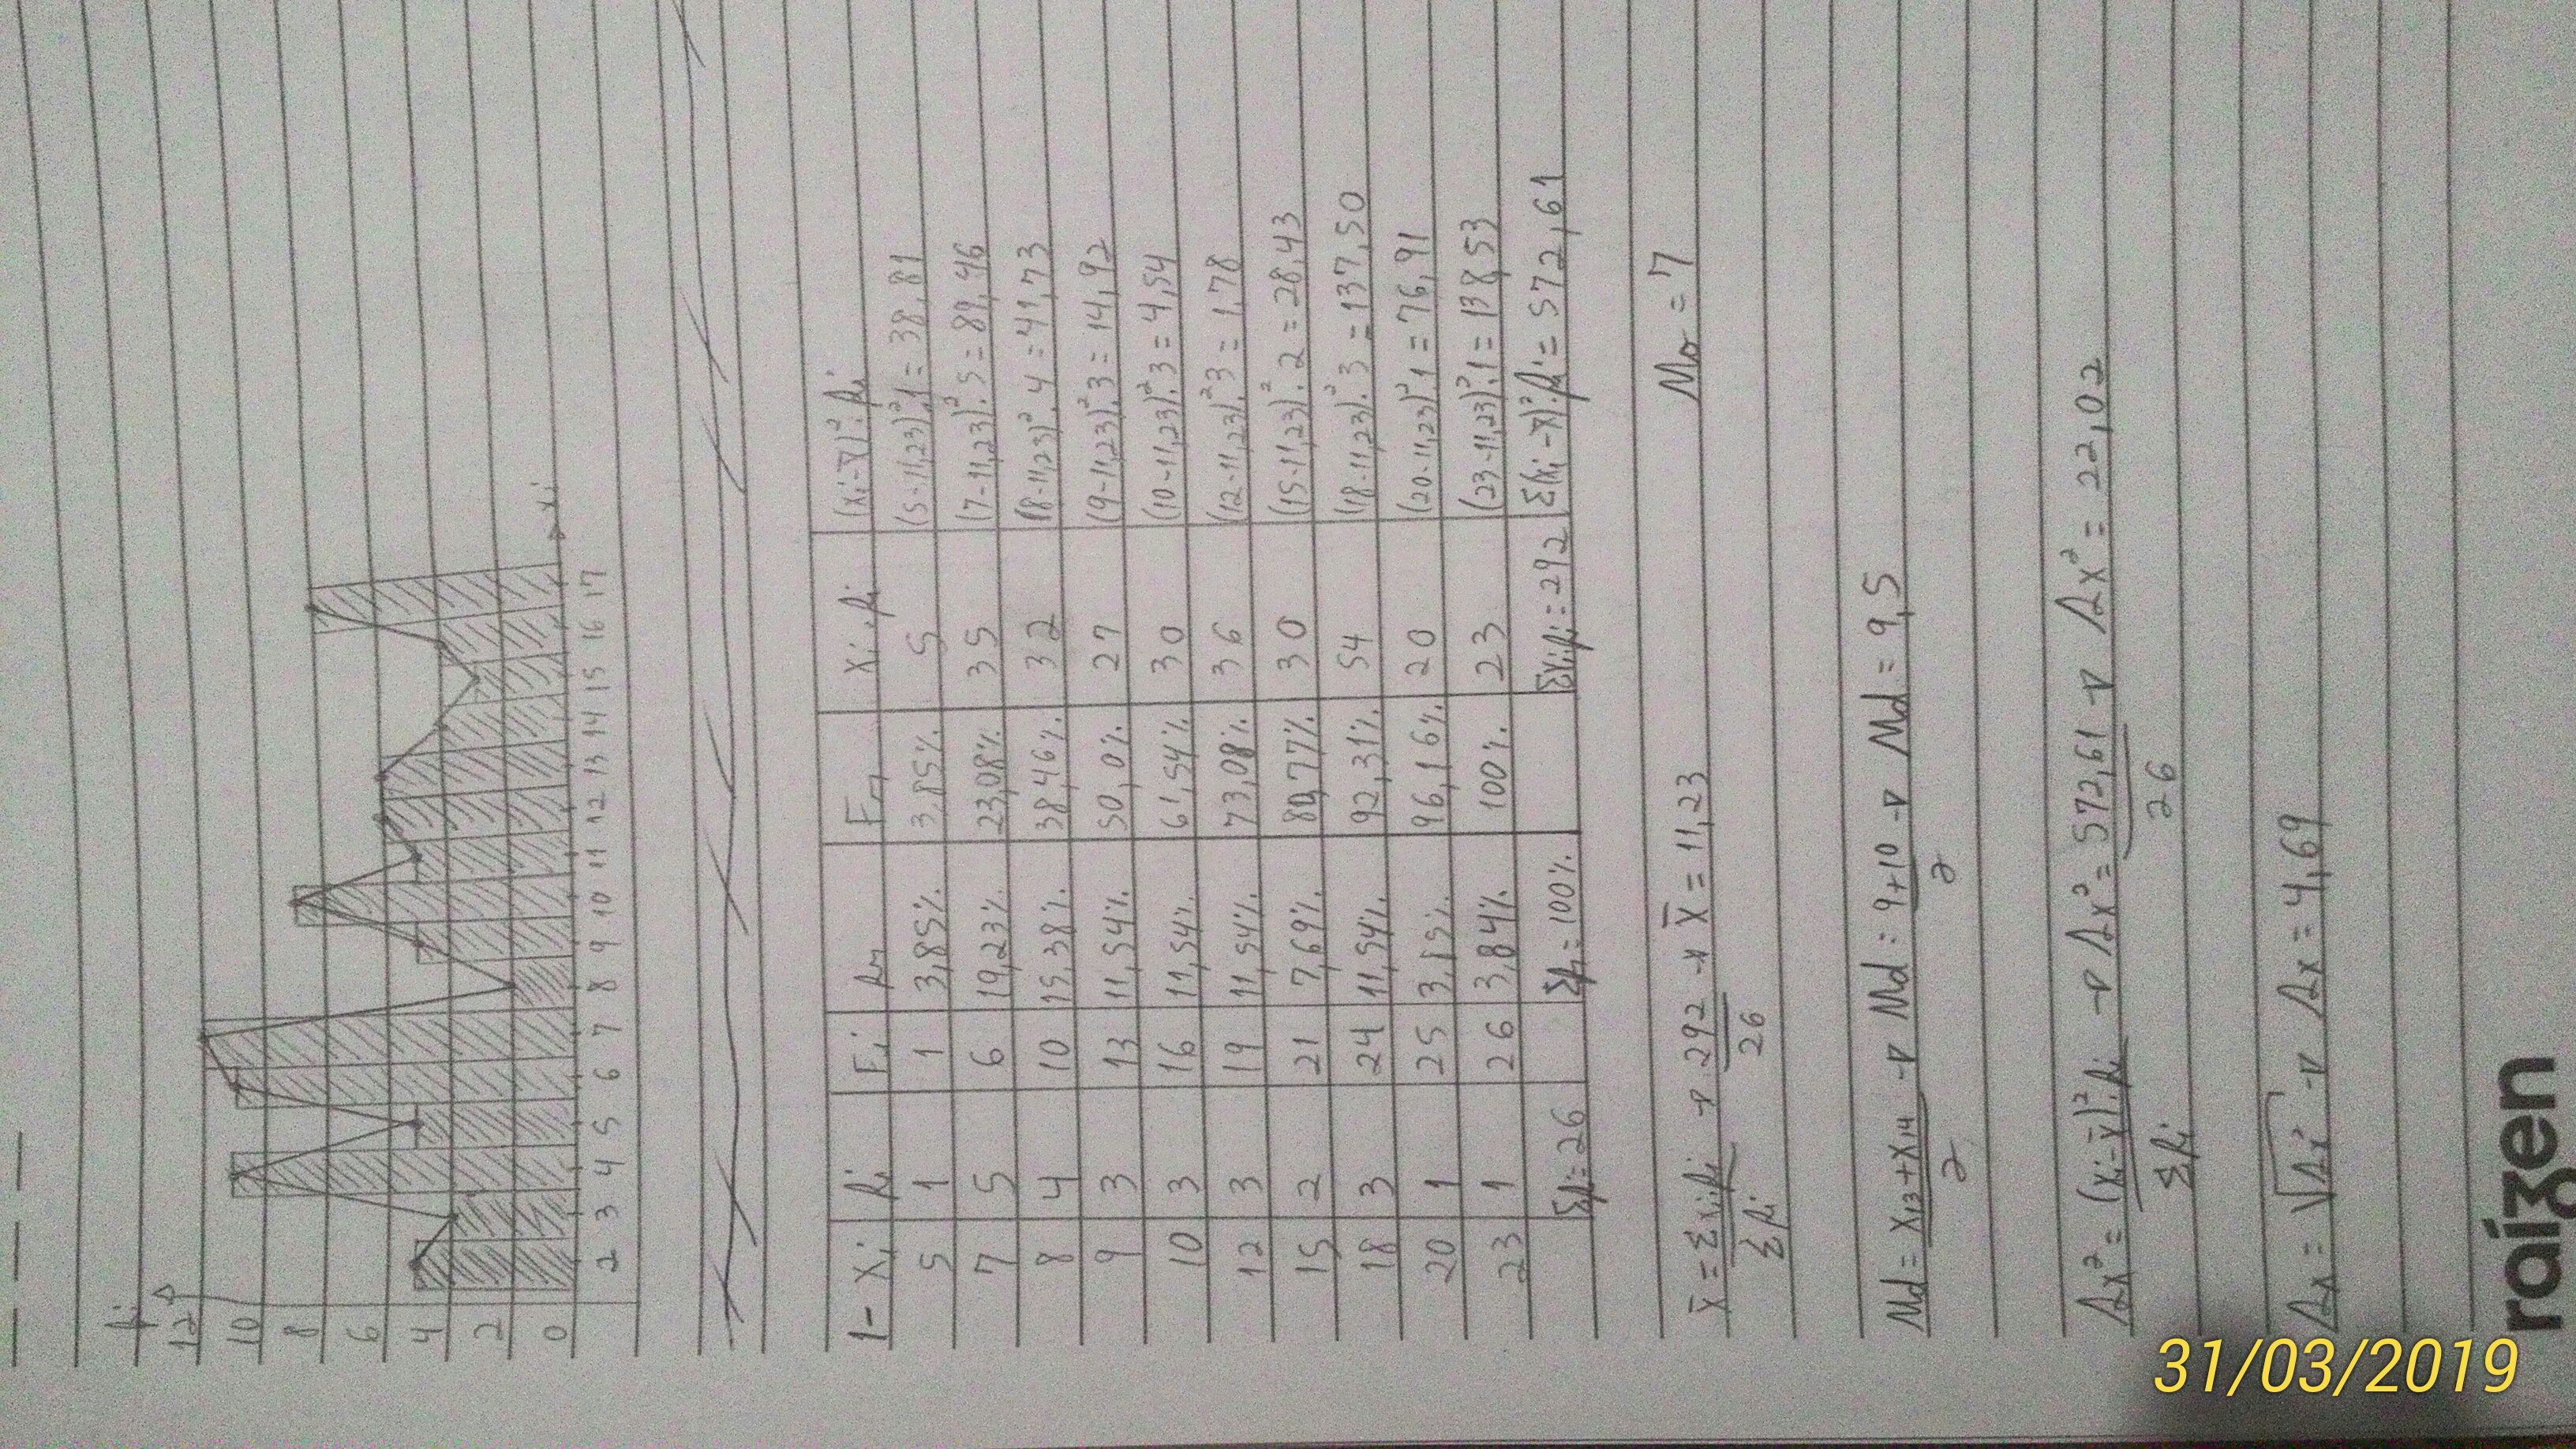 fi
12
10
8
6
4
2
0
2 3 4 5 6 7 8 9 10 11 12 13 14 15 16 17 xi
1- Xi fi Fi fr Fr Xi.fi (xi-x̄)².fi
5 1 1 3,85% 3,85% 5 (5-11,23)².1 = 38,81
7 5 6 19,23% 23,08% 35 (7-11,23)².5 = 89,46
8 4 10 15,38% 38,46% 32 (8-11,23)².4 = 41,73
9 3 13 11,54% 50,0% 27 (9-11,23)².3 = 14,92
10 3 16 11,54% 61,54% 30 (10-11,23)².3 = 4,54
12 3 19 11,54% 73,08% 36 (12-11,23)².3 = 1,78
15 2 21 7,69% 80,77% 30 (15-11,23)².2 = 28,43
18 3 24 11,54% 92,31% 54 (18-11,23)².3 = 137,50
20 1 25 3,85% 96,16% 20 (20-11,23)².1 = 76,91
23 1 26 3,84% 100% 23 (23-11,23)².1 = 138,53
Σfi=26 Σfr=100% Σxi.fi=292 Σ(xi-x̄)².fi = 572,61
X̄ = Σxi.fi/Σfi → 292/26 → X̄ = 11,23 Mo = 7
Md = X13+X14/2 → Md = 9+10/2 → Md = 9,5
Sx² = (xi-x̄)².fi/Σfi → Sx² = 572,61/26 → Sx² = 22,02
Sx = √Si² → Sx = 4,69
raízen
31/03/2019